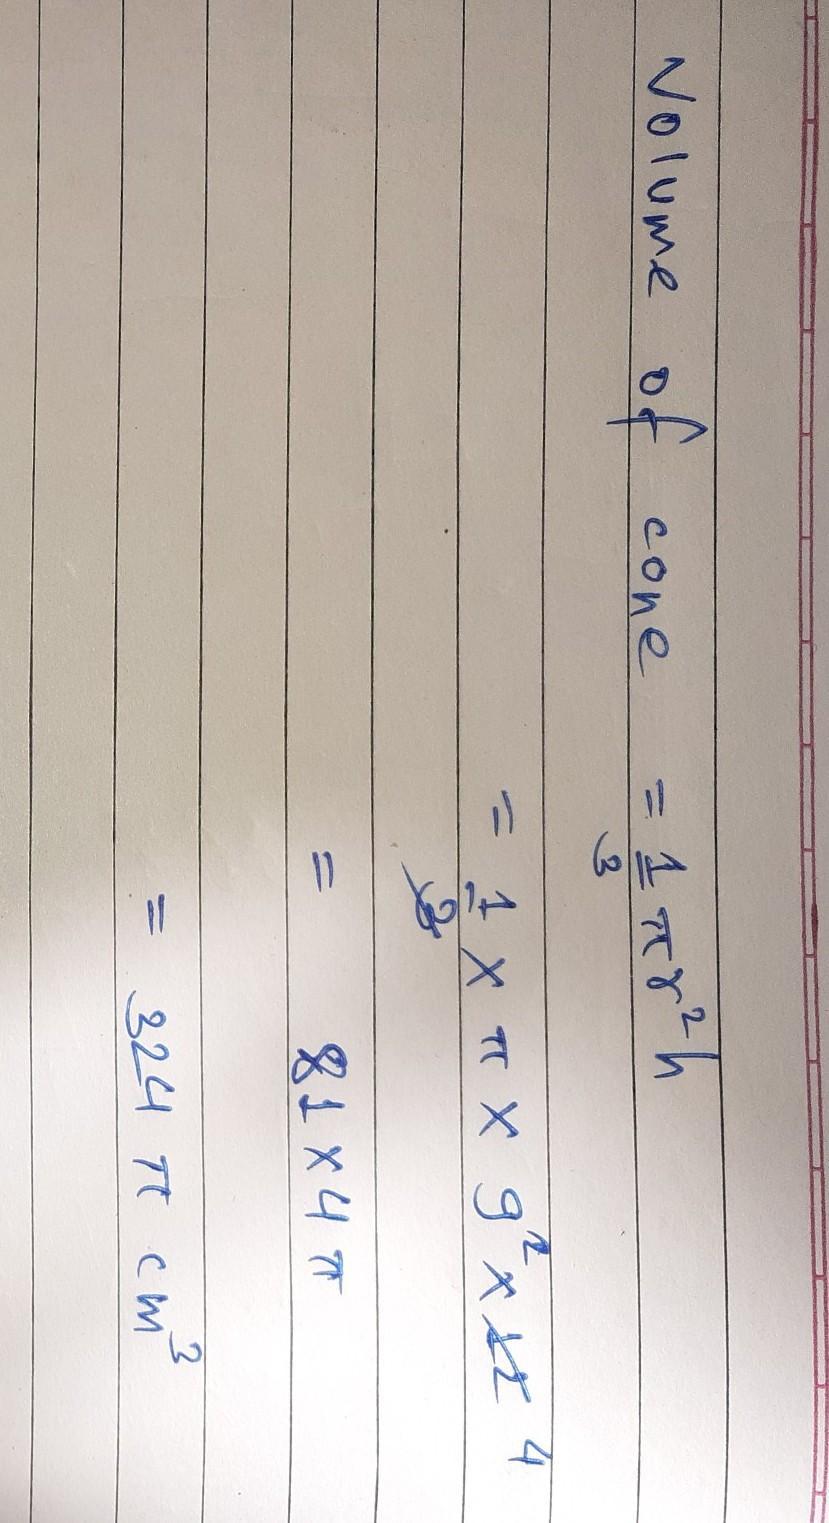 Volume of cone = 1/3 πr²h
= 1/3 × π × 9² × 12 4
= 81 × 4 π
= 324 π cm³